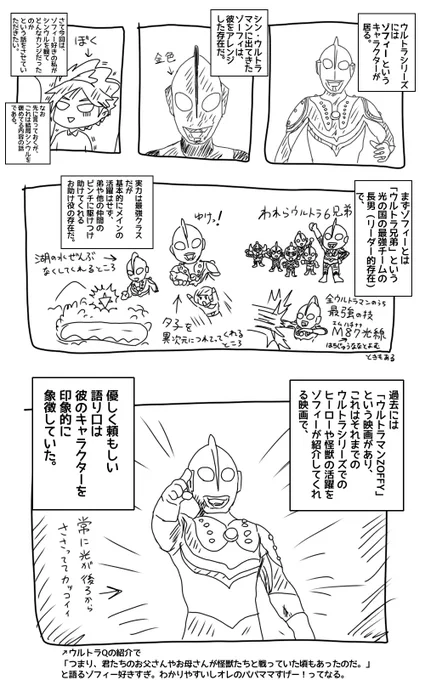 ウルトラシリーズ
には
ゾフィーという
キャラクターが
居る。
シン・ウルトラ
マンに出てきた
ゾーフィは、
彼をアレンジ
した存在だ。
金色
ぼく
さて今回は、
ゾフィー好きの私が
シンウルを観て
どんなカンジだった
のか
という話をさせてい
ただきたい。
なお
先に言っておくが、
これは結局シンウルを
褒めてる内容の話
である。
まずゾフィーとは
「ウルトラ兄弟」という
光の国の最強チームの
長男(リーダー的存在)
で、
われらウルトラ6兄弟
全ウルトラマンのうち
最強の技
M87光線
はちじゅうななとよむ
ときもある
実力は最強クラス
だが
基本的にメインの
活躍はせず、
弟や他の仲間の
ピンチに駆けつけ
助けてくれる
お助け役の存在だ。
ゆけっ!
湖の水ぜんぶ
なくしてくれるところ
夕子を
異次元につれてってくれる
ところ
過去には
「ウルトラマンZOFFY」
という映画があり、
これはそれまでの
ウルトラシリーズでの
ヒーローや怪獣の活躍を
ゾフィーが紹介してくれ
る映画で、
優しく頼もしい
語り口は
彼のキャラクターを
印象的に
象徴していた。
常に光が後ろから
ささっててカッコイイ
↗ウルトラQの紹介で
「つまり、君たちのお父さんやお母さんが怪獣たちと戦っていた頃もあったのだ。」
と語るゾフィー好きすぎ。わかりやすいしオレのパパママすげー!ってなる。